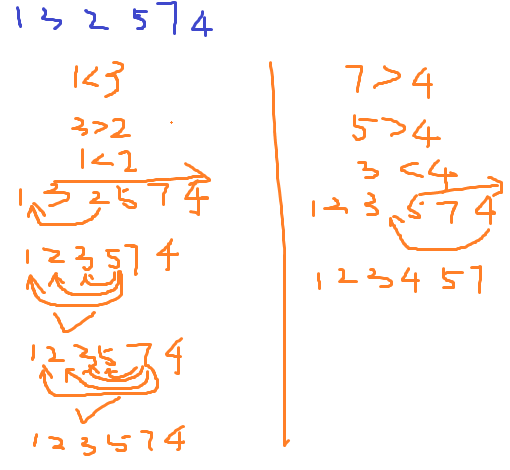 1 3 2 5 7 4
1<3
3>2
1<2
1 3 2 5 7 4
1 2 3 5 7 4
1 2 3 5 7 4
1 2 3 5 7 4
7>4
5>4
3<4
1 2 3 5 7 4
1 2 3 4 5 7